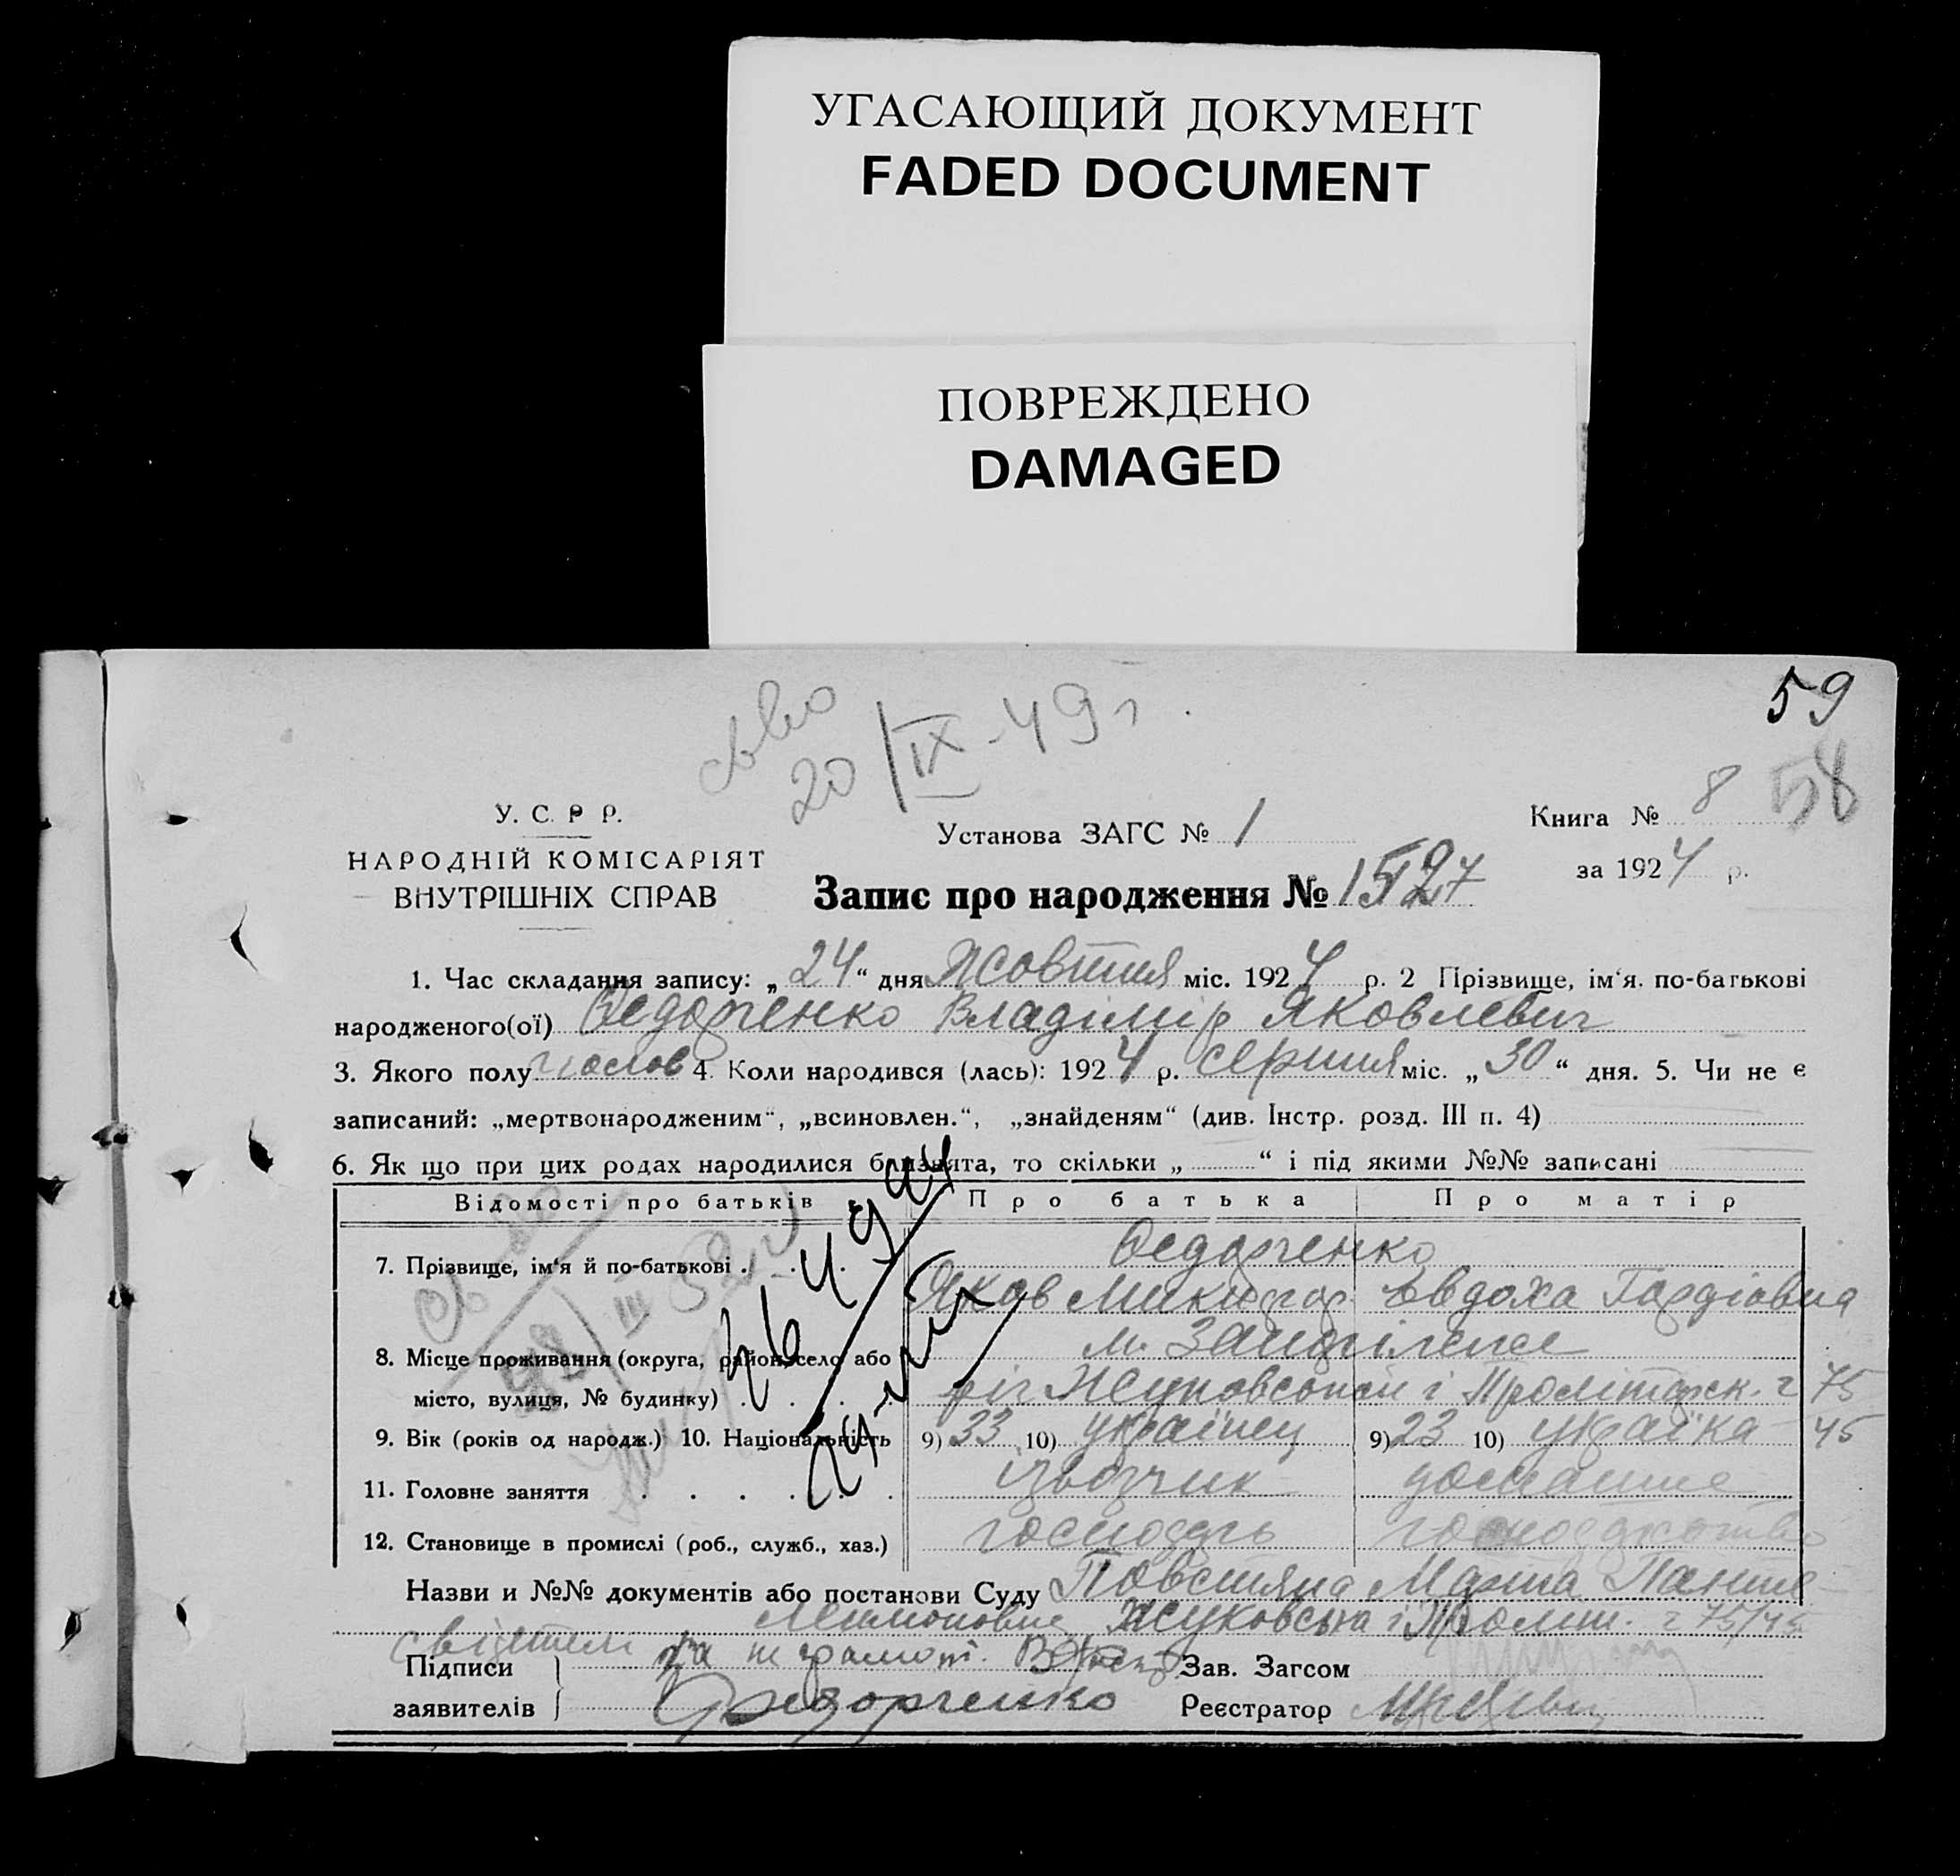 УГАСАЮЩИЙ ДОКУМЕНТ
FADED DOCUMENT
ПОВРЕЖДЕНО
DAMAGED
59
20/IX-49 г.
58
У. С. Р Р.
НАРОДНІЙ КОМІСАРІЯТ
ВНУТРІШНІХ СПРАВ
Установа ЗАГС № 1
Книга № 8
за 1924 р.
Запис про народження № 1527
1. Час складання запису: „24“ дня Жовтня міс. 1924 р. 2 Прізвище, ім‘я. по-батькові
народженого(ої) Федорченко Владімір Яковлевич
3. Якого полу 4. Коли народився (лась): 1924 р. серпня міс. „30“ дня. 5. Чи не є
записаний: „мертвонародженим“, „всиновлен.“, „знайденям“ (див. Інстр. розд. III п. 4)
6. Як що при цих родах народилися близнята, то скільки „ “ і під якими №№ записані
Відомості про батьків Про батька Про матір
7. Прізвище, ім‘я й по-батькові . . . Федорченко
Яков Микифор. Євдоха Гордіовна
8. Місце проживання (округа, район, село або
місто, вулиця, № будинку) . . . . ріг і Пролітарск. 75
9. Вік (років од народж.) 10. Національність 9) 33 10) українец 9) 23 10) україка 45
11. Головне заняття . . . . . . ізвозчик домашнє
12. Становище в промислі (роб., служб., хаз.) господарь господарство
Назви и №№ документів або постанови Суду Марта
Жуковська і 75/45
Підписи
заявителів
за неграмот.
Федорченко
Зав. Загсом
Реєстратор